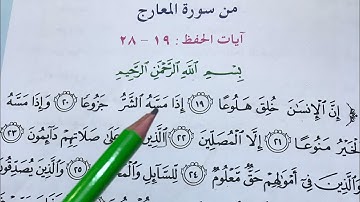 من سورة المعارج
آيات الحفظ : ١٩ – ٢٨
بِسْمِ ٱللَّهِ ٱلرَّحْمَٰنِ ٱلرَّحِيمِ
﴿ إِنَّ ٱلْإِنسَٰنَ خُلِقَ هَلُوعًا ١٩ إِذَا مَسَّهُ ٱلشَّرُّ جَزُوعًا ٢٠ وَإِذَا مَسَّهُ
ٱلْخَيْرُ مَنُوعًا ٢١ إِلَّا ٱلْمُصَلِّينَ ٢٢ ٱلَّذِينَ عَلَىٰ صَلَاتِهِمْ دَآئِمُونَ ٢٣
وَٱلَّذِينَ فِىٓ أَمْوَٰلِهِمْ حَقٌّ مَّعْلُومٌ ٢٤ لِّلسَّآئِلِ وَٱلْمَحْرُومِ ٢٥ وَٱلَّذِينَ يُصَدِّقُونَ